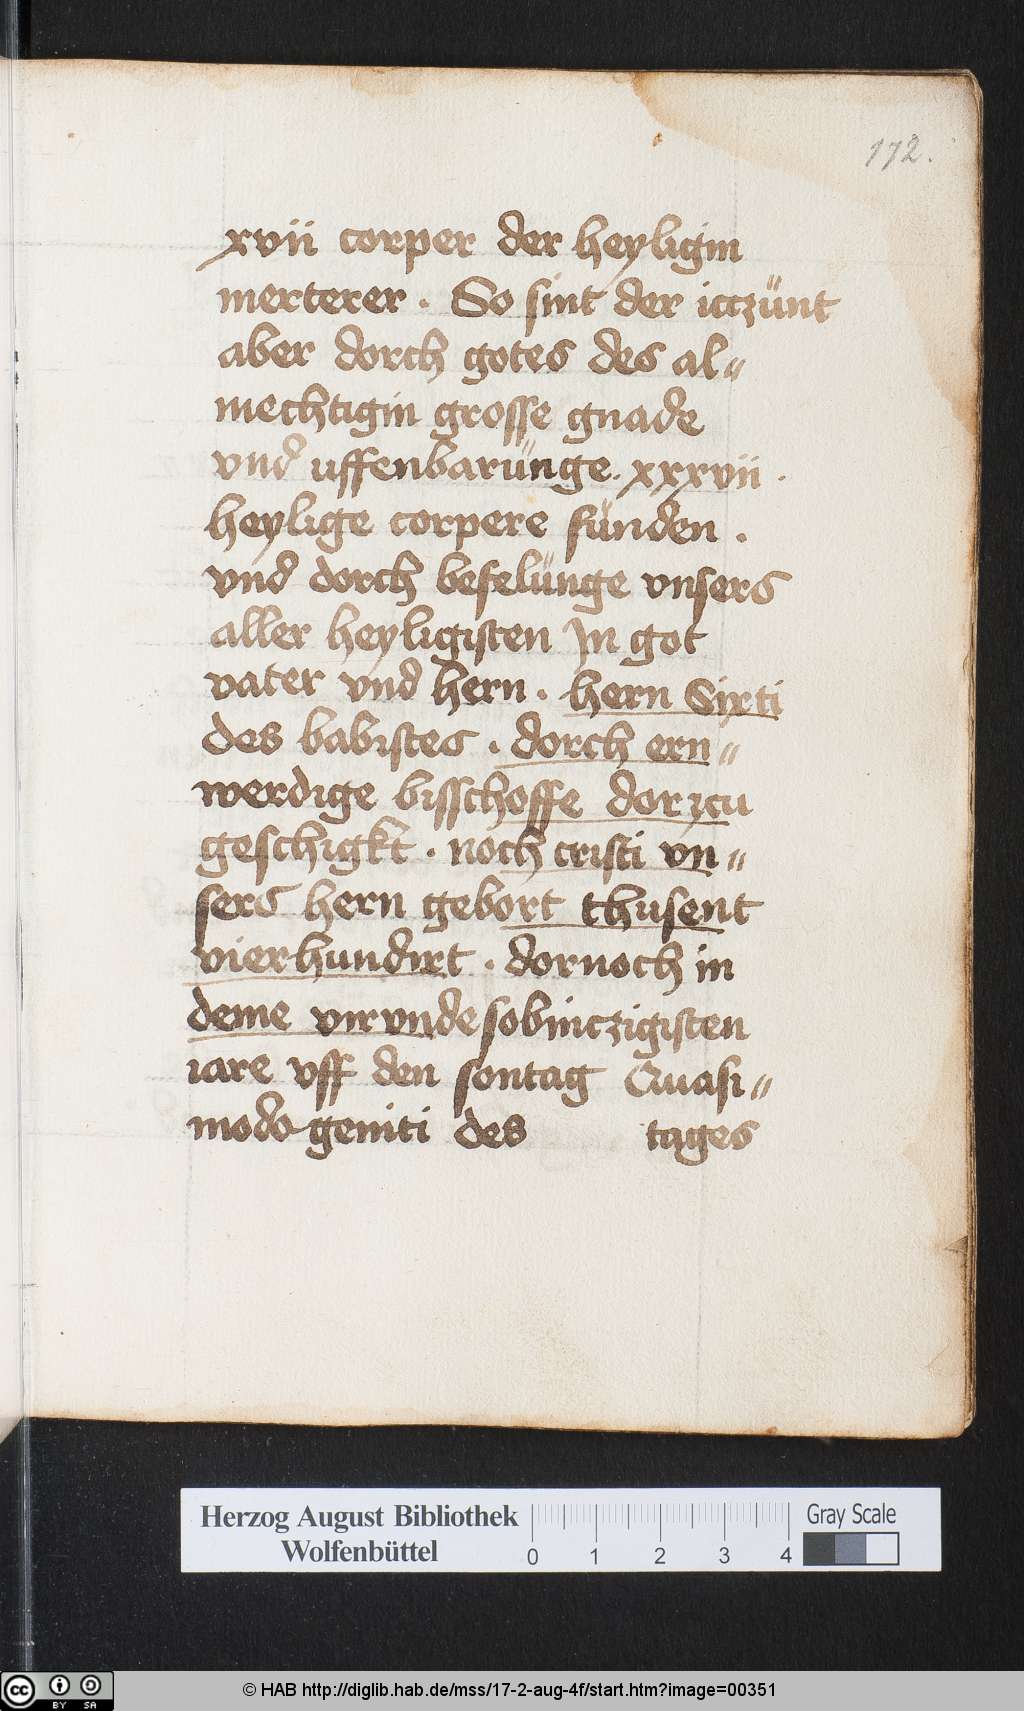 172.
xvii corper der heyligin
merterer . So sint der iczünt
aber dorch gotes des al-
mechtigin grosse gnade
vnd uffenbarünge . xxxvii .
heylige corpere fünden .
vnd dorch befelünge vnsers
aller heyligisten In got
vater vnd hern . hern Sixti
des babistes . dorch ern-
werdige bisschoffe dorzcu
geschigkt . noch cristi vn-
sers hern gebort thusent
vierhundirt . dornoch in
deme virvnde sobinczigisten
iare vff den sontag Quasi-
modo geniti des tages
Herzog August Bibliothek
Wolfenbüttel
0 1 2 3 4
Gray Scale
cc BY SA
© HAB http://diglib.hab.de/mss/17-2-aug-4f/start.htm?image=00351